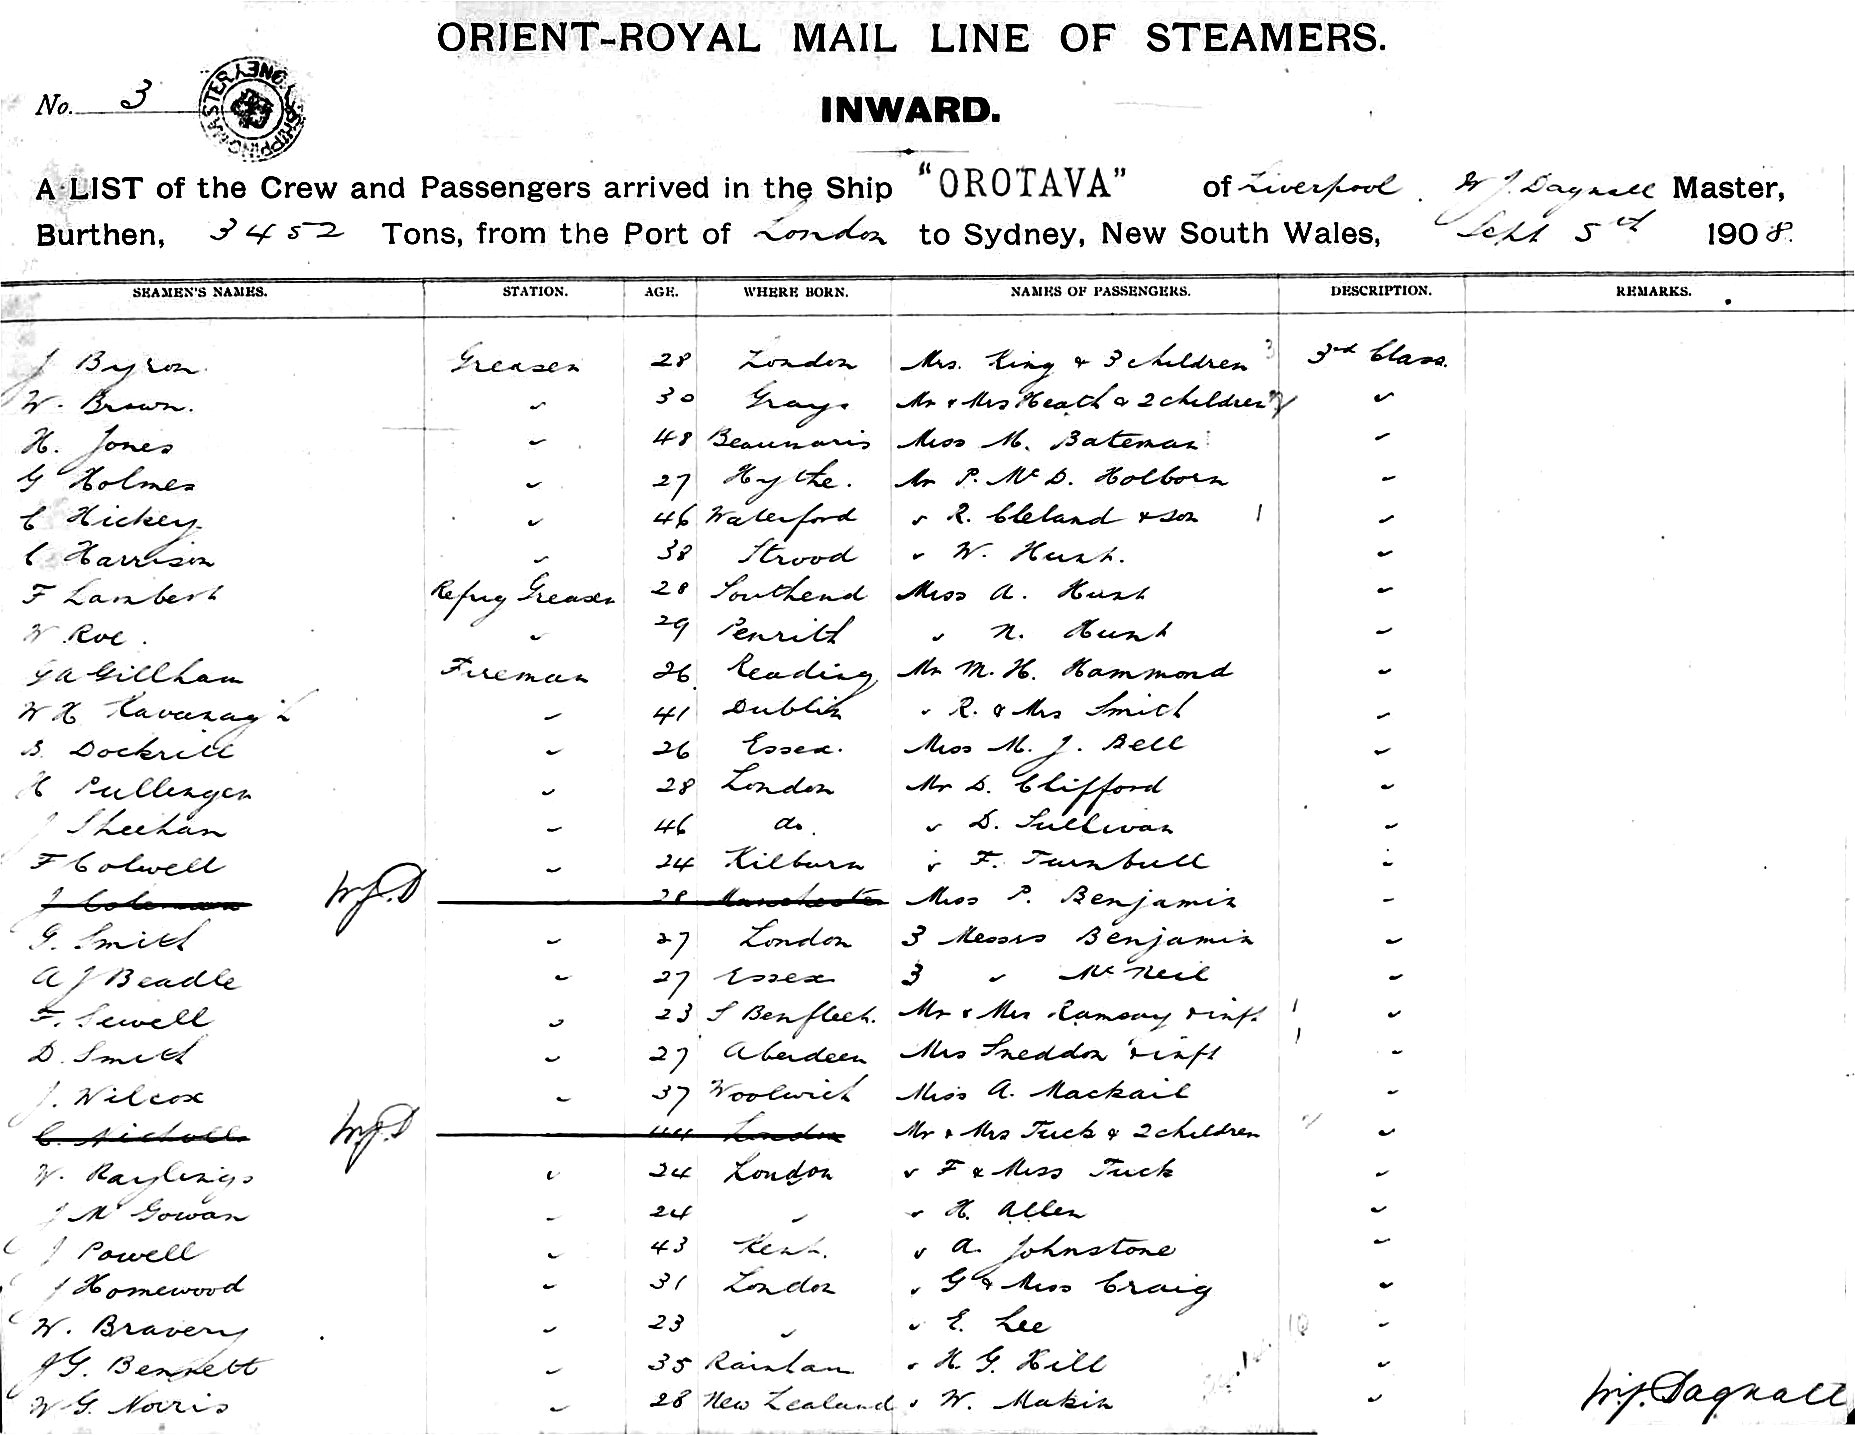 ORIENT-ROYAL MAIL LINE OF STEAMERS.
No. 3
INWARD.
A LIST of the Crew and Passengers arrived in the Ship "OROTAVA" of Liverpool. W J. Dagnall Master,
Burthen, 3452 Tons, from the Port of London to Sydney, New South Wales, Sept 5th 1908.
SEAMEN'S NAMES. STATION. AGE. WHERE BORN. NAMES OF PASSENGERS. DESCRIPTION. REMARKS.
J Byron. Greaser 28 London Mrs. King & 3 children 3 3rd Class.
W. Brown. " 30 Grays Mr & Mrs Heath & 2 children "
H. Jones " 48 Beaumaris Miss M. Bateman "
G Holmes " 27 Hythe. Mr P. Mc D. Holborn "
C Hickey " 46 Waterford " R. Cleland & son 1 "
C Harrison " 38 Strood " W. Hunt. "
F Lambert Refrig Greaser 28 Southend Miss A. Hunt "
W Roe. " 29 Penrith " N. Hunt "
G A Gillham Fireman 26 Reading Mr M. H. Hammond "
W H Kavanagh " 41 Dublin " R. & Mrs Smith "
B. Dockrill " 26 Essex. Miss M. J. Bell "
H Pullenger " 28 London Mr D. Clifford "
J Sheehan " 46 do. " D. Sullivan "
F Colwell " 24 Kilburn " F. Turnbull "
J Coleman W.J.D 28 Manchester Miss P. Benjamin "
G. Smith " 27 London 3 Messrs Benjamin "
A J Beadle " 27 Essex 3 " McNeil "
F. Sewell " 23 S Benfleet. Mr & Mrs Ramsay & inft 1 "
D. Smith " 27 Aberdeen Mrs Sneddon & inft 1 "
J. Wilcox " 37 Woolwich Miss A. Mackail "
C. Nicholls W.J.D 44 London Mr & Mrs Tuck & 2 children "
W. Raylings " 24 London " F & Miss Tuck "
J McGowan " 24 " " H. Allen "
J Powell " 43 Kent. " A. Johnstone "
J Homewood " 31 London " G & Miss Craig "
W. Bravery " 23 " " E. Lee "
J G. Bennett " 35 Rainham " H. G. Hill "
W G. Norris " 28 New Zealand " W. Makin "
W.J. Dagnall